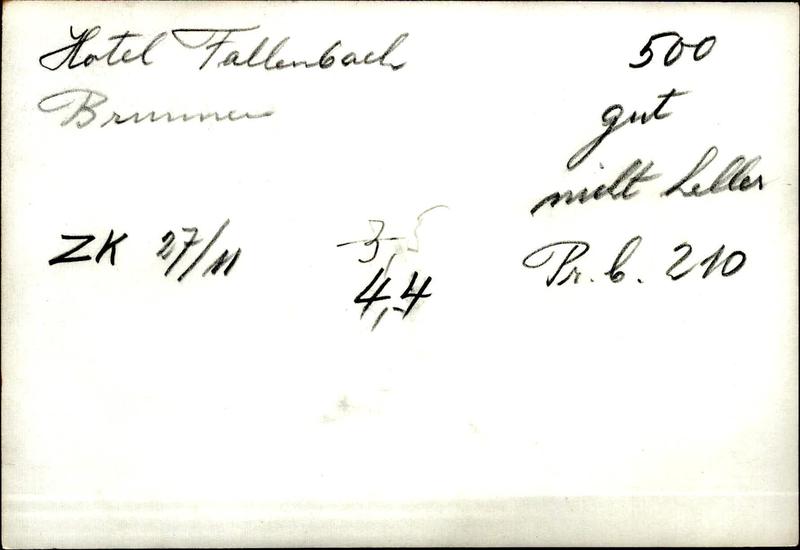 Hotel Fallenbach
Brunnen
500
gut
nicht heller
ZK 27/11
3,5
4,4
Pr. b. 210